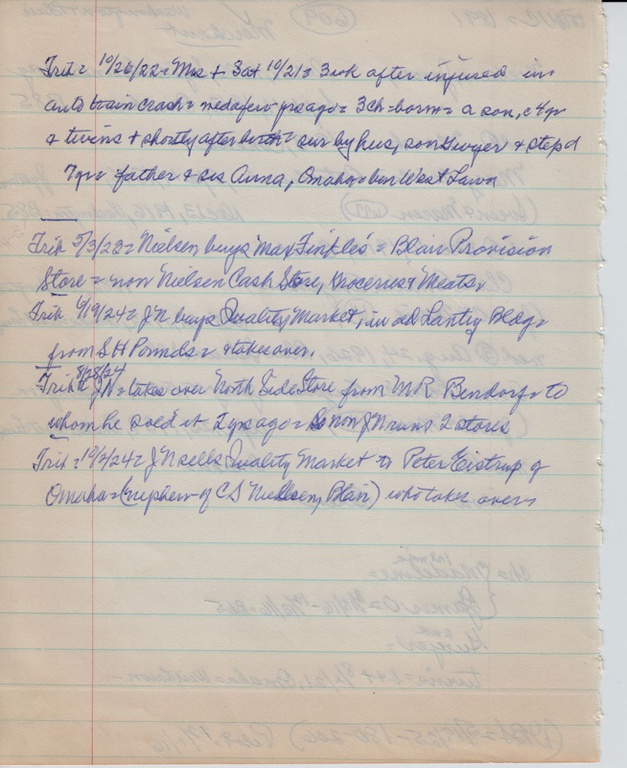 Trib = 10/26/22 = Mrs + Sat 10/21 = 3 wk after injured in
auto train crash = med a few yrs ago = 3 ch = born = a son, c 4 yr
& twins + shortly after birth = sur by hus, son & step d
7 yr = father & sis Anna, Omaha = bur West Lawn
Trib 5/3/23 = Nielsen buys Max Finkles = Blair Provision
Store = now Nielsen Cash Store, Groceries & Meats.
Trib 6/19/24 = JN buys Quality Market, in old Lantry Bldg =
from S H Pounds = & takes over.
Trib 8/28/24 JN = takes over North Side Store from M R Bendorf = to
whom he sold it 2 yrs ago = So now JN runs 2 stores
Trib = 10/2/24 = JN sells Quality Market to Peter Eistrup of
Omaha = (nephew of C S Nielsen, Blair) who takes over =